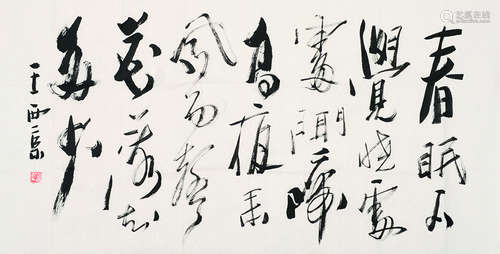 春眠不
覺曉處
處聞啼
鳥夜来
風雨聲
花落知
多少
王西京